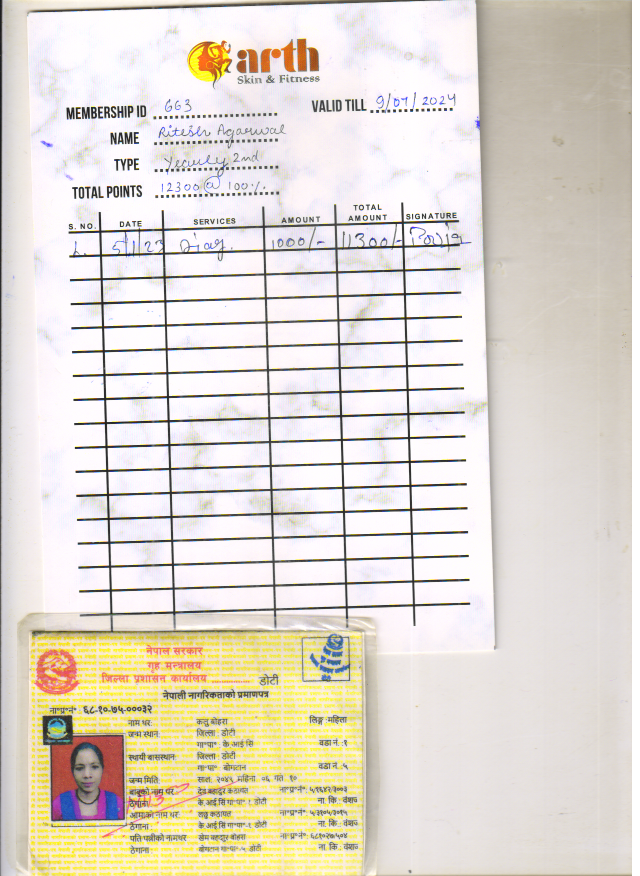 arth
Skin & Fitness
MEMBERSHIP ID 663
VALID TILL 9/07/2024
NAME Ritesh Agarwal
TYPE Yearly 2nd
TOTAL POINTS 12300 @ 100%.
S. NO. DATE SERVICES AMOUNT TOTAL AMOUNT SIGNATURE
1. 5/1/23 1000/- 11300/-
नेपाल सरकार
गृह मन्त्रालय
जिल्ला प्रशासन कार्यालय ................ डोटी
नेपाली नागरिकताको प्रमाणपत्र
ना॰प्र॰नं॰ : ६८-१०-७५-०००३२
नाम थर: कलु बोहरा लिङ्ग :महिला
जन्म स्थान: जिल्ला : डोटी
गा॰पा॰ : के आई सिं वडा नं. :१
स्थायी बासस्थान: जिल्ला : डोटी
गा॰पा॰ बोगटान वडा नं. :५
जन्म मिति: साल: २०४५ महिना ०६ गते १०
बाबुको नाम थर: देव बहादुर कठायत ना॰प्र॰नं॰
ठेगाना: के.आई.सिं गा॰पा॰ १ डोटी ना. कि. : वंशज
आमाको नाम थर: कठायत ना॰प्र॰नं॰
ठेगाना : के आई सिं गा॰पा॰-१ डोटी ना. कि. : वंशज
पति/पत्नीको नामथर : खेम बहादुर बोहरा ना॰प्र॰नं॰
ठेगाना : बोगटान गा॰पा॰-५ डोटी ना. कि. : वंशज